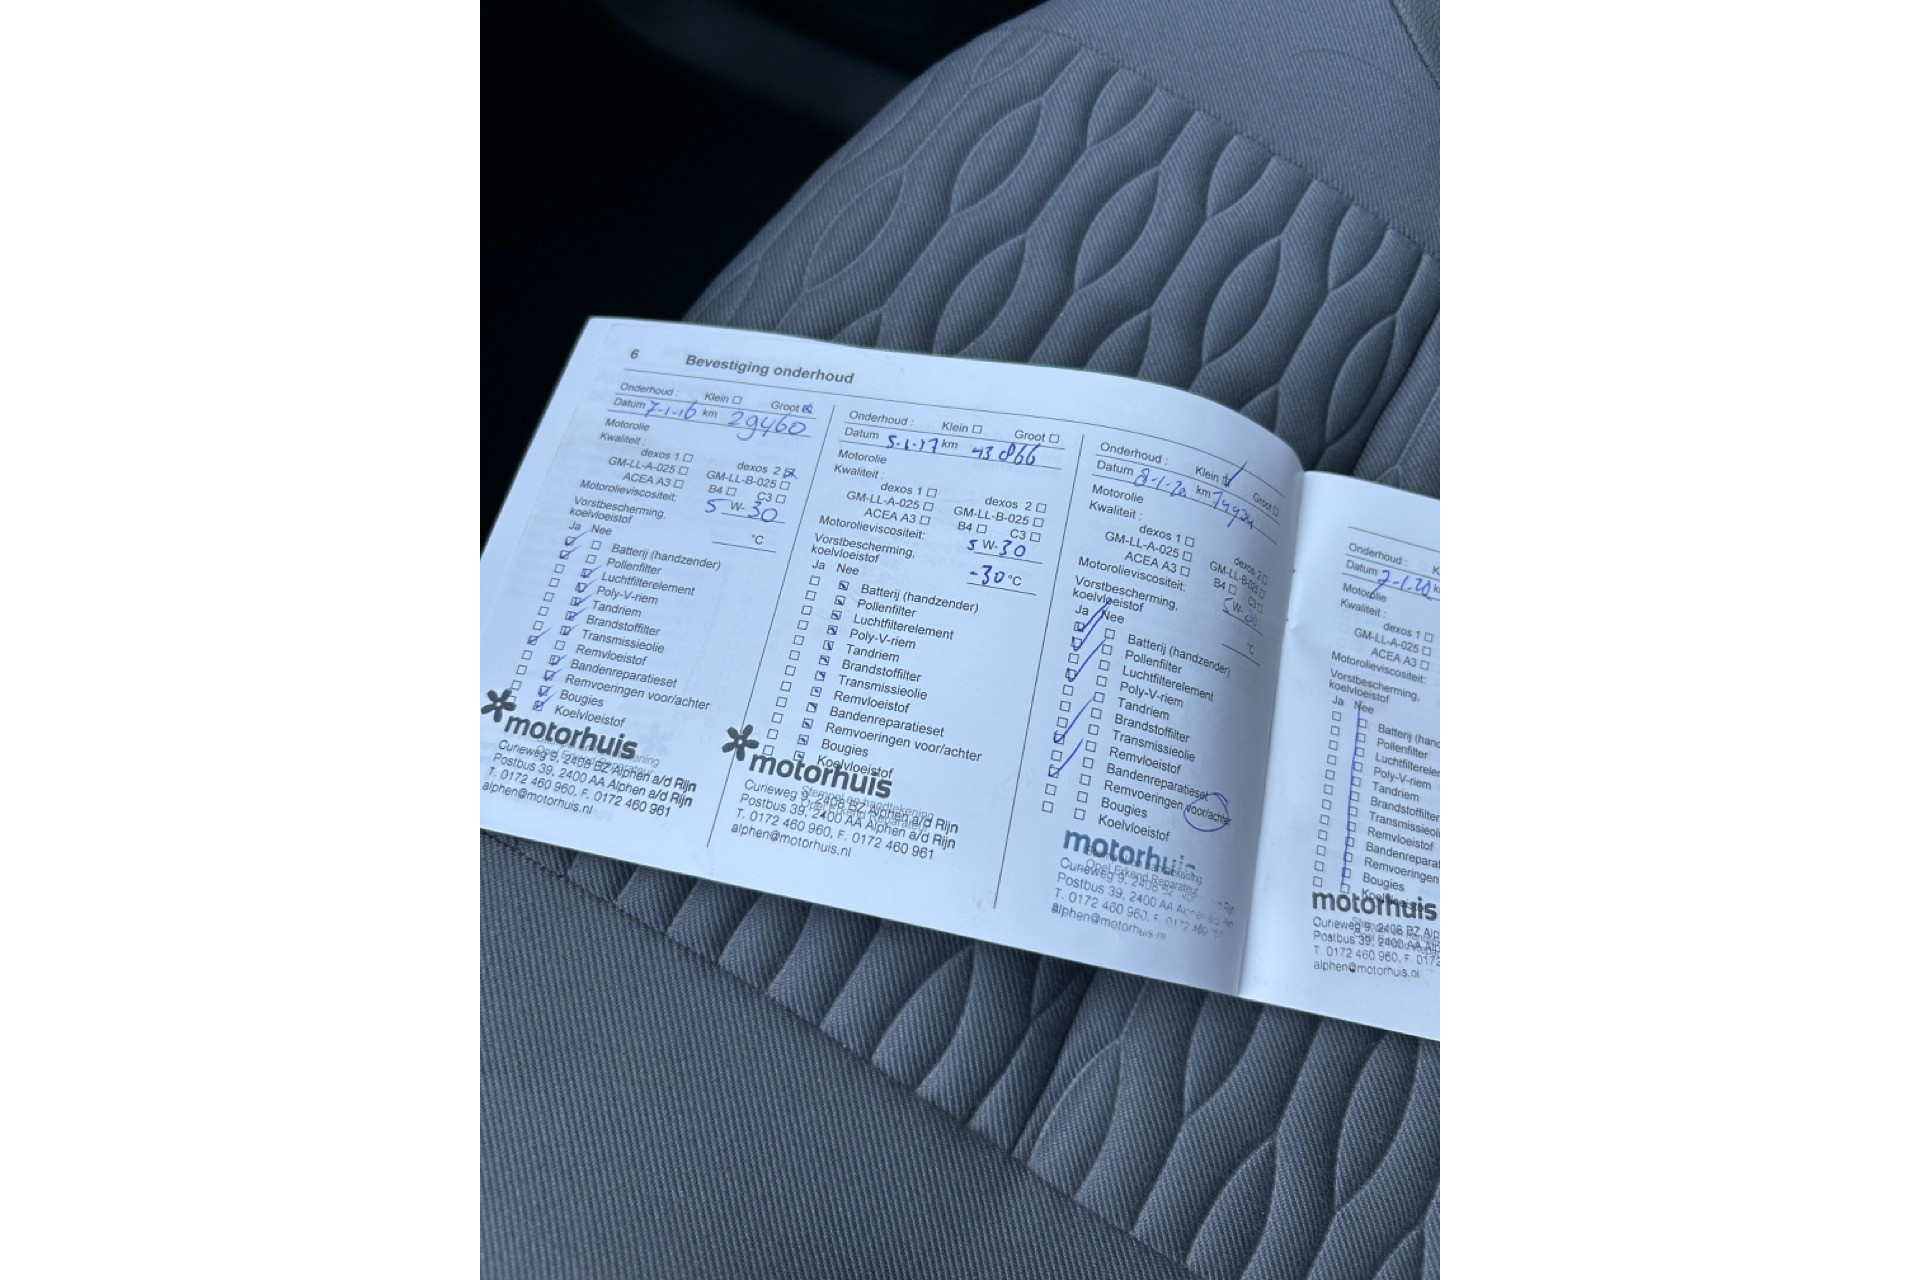 6 Bevestiging onderhoud
Onderhoud : Klein Groot
Datum 7-1-16 km 29460
Motorolie
Kwaliteit :
dexos 1 dexos 2
GM-LL-A-025 GM-LL-B-025
ACEA A3 B4 C3
Motorolieviscositeit: 5 W- 30
Vorstbescherming,
koelvloeistof °C
Ja Nee
Batterij (handzender)
Pollenfilter
Luchtfilterelement
Poly-V-riem
Tandriem
Brandstoffilter
Transmissieolie
Remvloeistof
Bandenreparatieset
Remvoeringen voor/achter
Bougies
Koelvloeistof
motorhuis
Curieweg 9, 2408 BZ Alphen a/d Rijn
Postbus 39, 2400 AA Alphen a/d Rijn
T. 0172 460 960, F. 0172 460 961
alphen@motorhuis.nl
Onderhoud : Klein Groot
Datum 5-1-17 km 43 866
Motorolie
Kwaliteit :
dexos 1 dexos 2
GM-LL-A-025 GM-LL-B-025
ACEA A3 B4 C3
Motorolieviscositeit: 5 W- 30
Vorstbescherming,
koelvloeistof -30 °C
Ja Nee
Batterij (handzender)
Pollenfilter
Luchtfilterelement
Poly-V-riem
Tandriem
Brandstoffilter
Transmissieolie
Remvloeistof
Bandenreparatieset
Remvoeringen voor/achter
Bougies
Koelvloeistof
motorhuis
Stempel en handtekening
Opel Erkend Reparateur
Curieweg 9, 2408 BZ Alphen a/d Rijn
Postbus 39, 2400 AA Alphen a/d Rijn
T. 0172 460 960, F. 0172 460 961
alphen@motorhuis.nl
Onderhoud : Klein Groot
Datum 8-1-20 km
Motorolie
Kwaliteit :
dexos 1 dexos 2
GM-LL-A-025 GM-LL-B-025
ACEA A3 B4 C3
Motorolieviscositeit: 5 W- 30
Vorstbescherming,
koelvloeistof °C
Ja Nee
Batterij (handzender)
Pollenfilter
Luchtfilterelement
Poly-V-riem
Tandriem
Brandstoffilter
Transmissieolie
Remvloeistof
Bandenreparatieset
Remvoeringen voor/achter
Bougies
Koelvloeistof
motorhuis
Opel Erkend Reparateur
Curieweg 9, 2408 BZ Alphen a/d Rijn
Postbus 39, 2400 AA Alphen a/d Rijn
T. 0172 460 960, F. 0172 460 961
alphen@motorhuis.nl
Onderhoud : K
Datum
Motorolie
Kwaliteit :
dexos 1
GM-LL-A-025
ACEA A3
Motorolieviscositeit:
Vorstbescherming,
koelvloeistof
Ja Nee
Batterij (hand
Pollenfilter
Luchtfilterele
Poly-V-riem
Tandriem
Brandstoffilter
Transmissieoli
Remvloeistof
Bandenreparat
Remvoeringen
Bougies
Koelvloeistof
motorhuis
Curieweg 9, 2408 BZ Alp
Postbus 39, 2400 AA Alp
T. 0172 460 960, F. 0172
alphen@motorhuis.nl